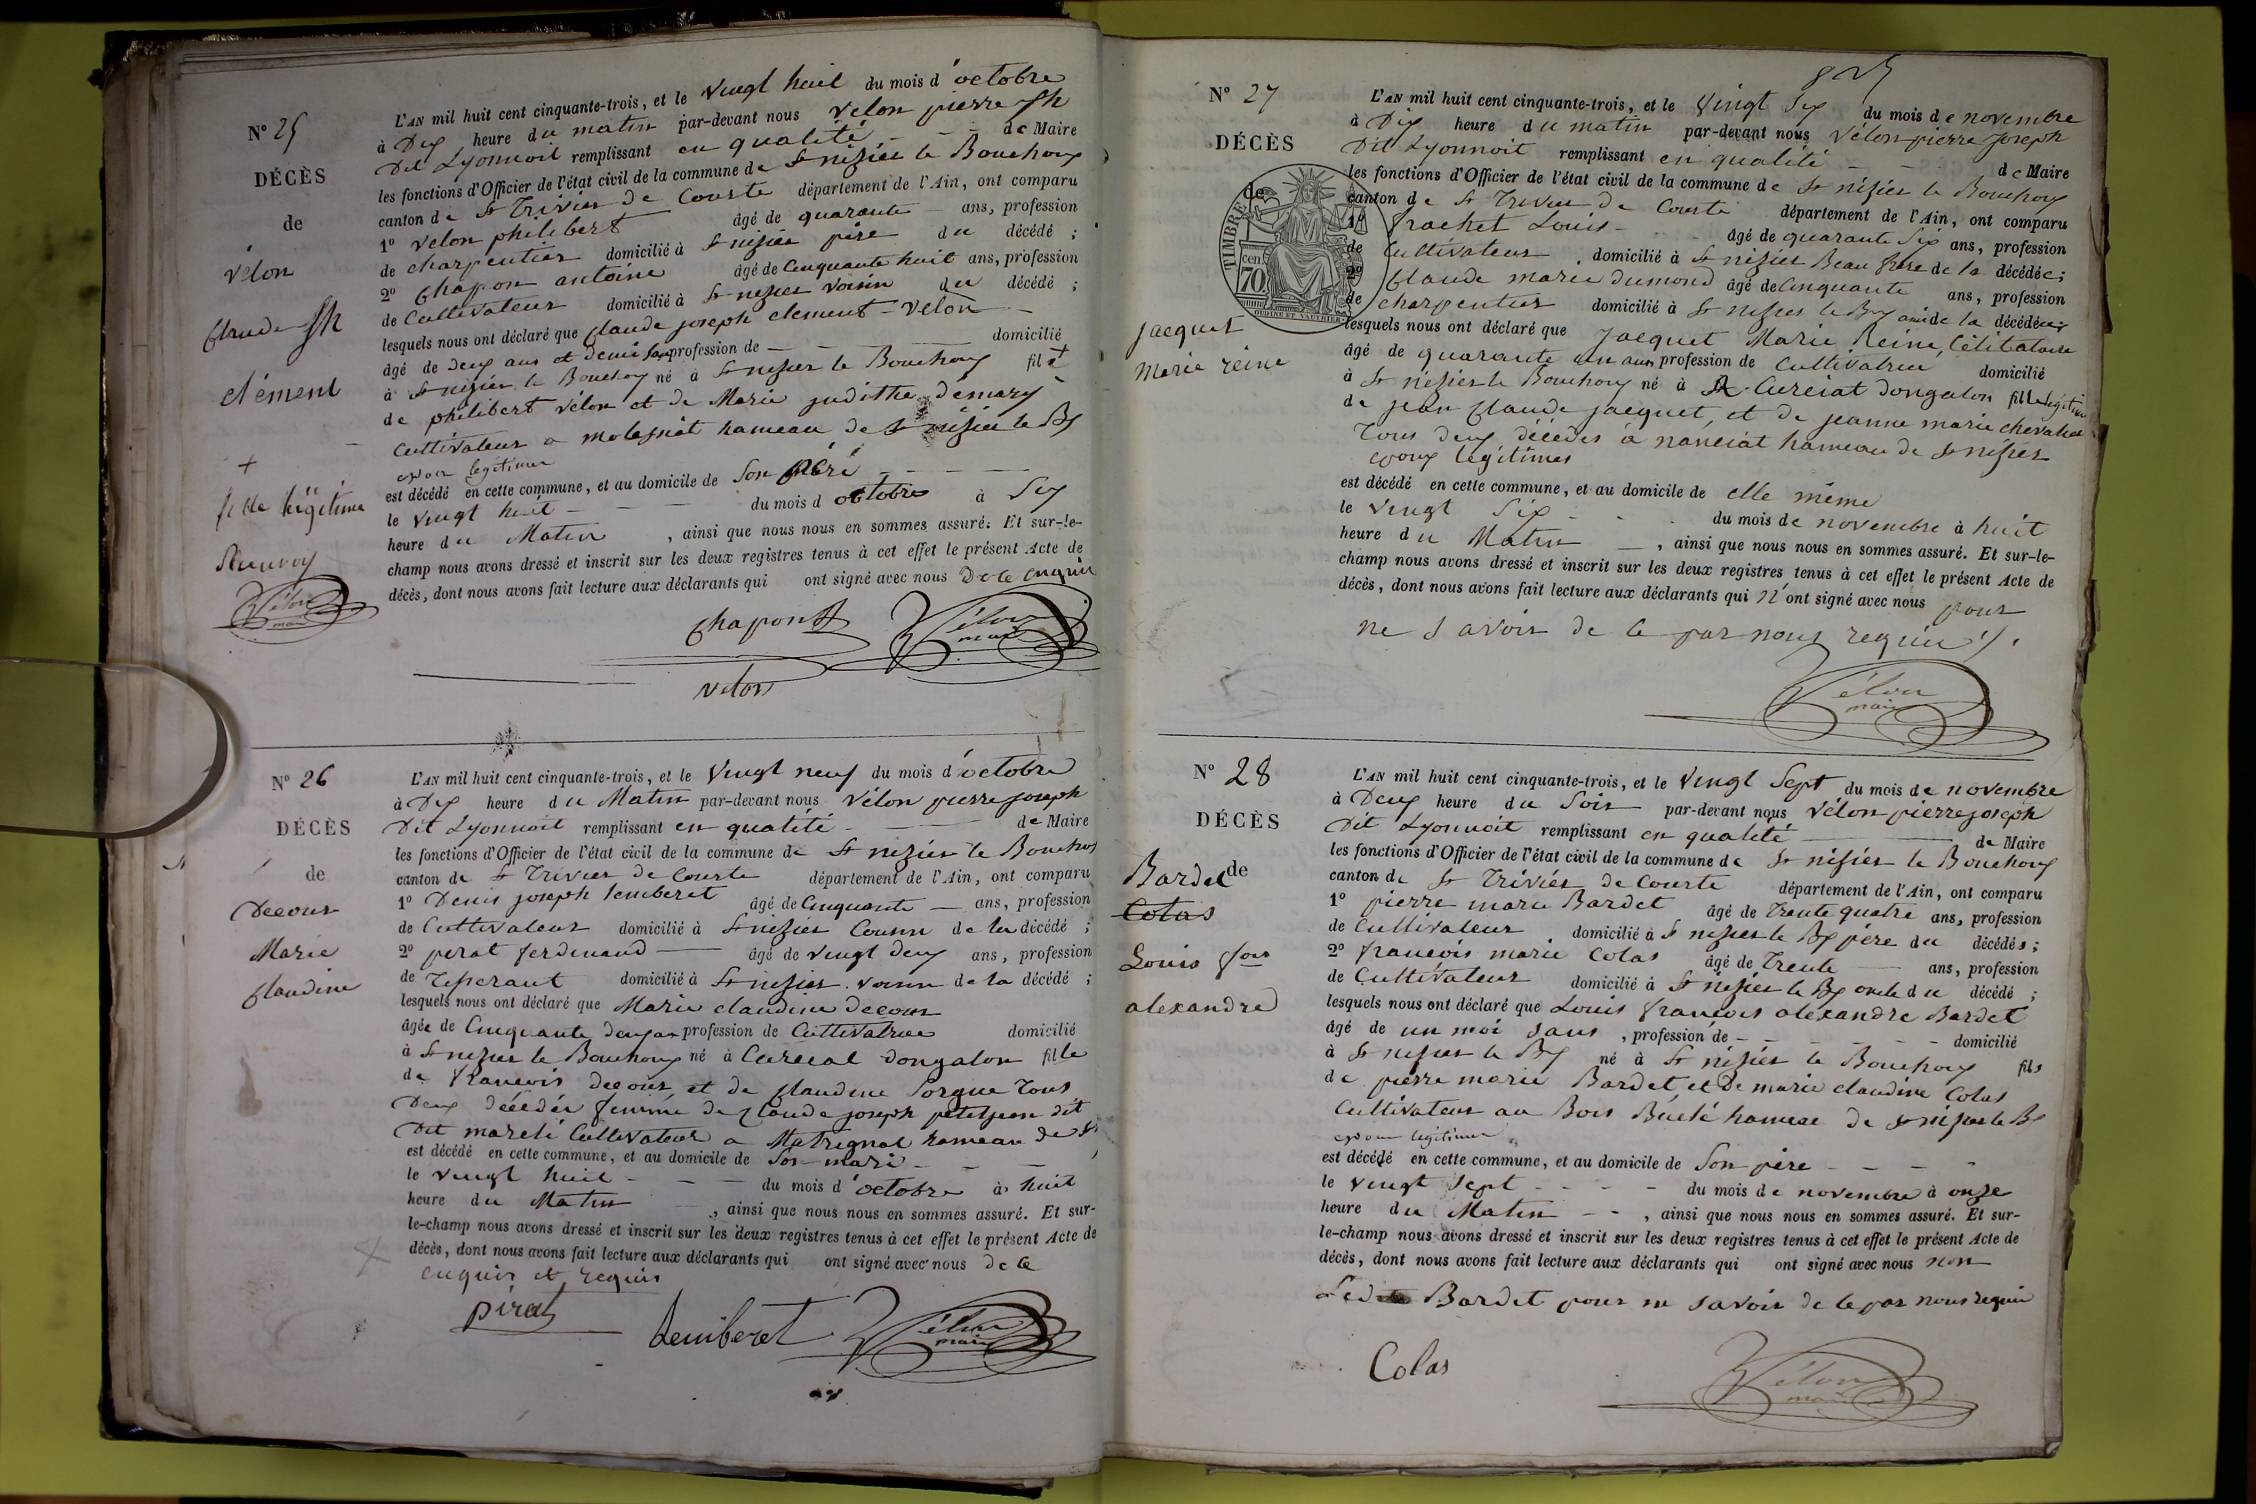 N° 25
DÉCÈS
de
vélon
Claude Jh
clément
+
fille légitime
Renvoy
Vélon
maire
L'AN mil huit cent cinquante-trois, et le vingt huit du mois d'octobre
à Dix heure du matin par-devant nous velon pierre Jh
Dit Lyonnoit remplissant en qualité - - de Maire
les fonctions d'Officier de l'état civil de la commune de St nizier le Bouchoux
canton de St Trivier de Courte département de l'Ain, ont comparu
1° velon philibert âgé de quarante — ans, profession
de charpentier domicilié à St nizier père du décédé ;
2° Chapon antoine âgé de Cinquante huit ans, profession
de Cultivateur domicilié à St nizier voisin du décédé ;
lesquels nous ont déclaré que Claude joseph clement - velon —
âgé de deux ans et demi sans profession de — — domicilié
à St nizier le Bouchoy né à St nizier le Bouchoux fil +
de philibert vélon et de Marie judithe démary
Cultivateur a molegniat hameau de St nizier le Bx
epoux legitimes
est décédé en cette commune, et au domicile de Son péré - - - -
le vingt huit - - - du mois d octobre à Six
heure du Matin , ainsi que nous nous en sommes assuré. Et sur-le-
champ nous avons dressé et inscrit sur les deux registres tenus à cet effet le présent Acte de
décès, dont nous avons fait lecture aux déclarants qui ont signé avec nous De ce enquis
Chapon
Vélon
maire
velon
N° 26
DÉCÈS
de
Decour
Marie
Claudine
L'AN mil huit cent cinquante-trois, et le vingt neuf du mois d'octobre
à Dix heure du Matin par-devant nous vélon pierre joseph
Dit Lyonnoit remplissant en qualité - — de Maire
les fonctions d'Officier de l'état civil de la commune de St nizier le Bouchoux
canton de St Trivier de Courte département de l'Ain, ont comparu
1° Denis joseph Lemberet âgé de Cinquante — ans, profession
de Cultivateur domicilié à St nizier Cousin de la décédé ;
2° perat ferdinand — âgé de vingt deux ans, profession
de Tisserant domicilié à St nizier voisin de la décédé ;
lesquels nous ont déclaré que Marie claudine decour
âgée de Cinquante deux ans profession de Cultivatrice domicilié
à St nizier le Bouchoux né à Curciat dongalon fille
de francois decour et de Claudine Sorgue Tous
Deux décédés femme de Claude joseph petitjean dit
Dit marelé Cultivateur a Matrignat hameau de St
est décédé en cette commune, et au domicile de Son mari - - —
le vingt huit - — - du mois d'octobre à huit
heure du Matin — , ainsi que nous nous en sommes assuré. Et sur-
le-champ nous avons dressé et inscrit sur les deux registres tenus à cet effet le présent Acte de
décès, dont nous avons fait lecture aux déclarants qui ont signé avec nous de ce
enquis et requis
pirat
Lemberet
Vélon
maire
N° 27
DÉCÈS
de
jacquet
Marie reine
TIMBRE
cen
70.
OUDINE ET VAUTHIER
L'AN mil huit cent cinquante-trois, et le vingt Six du mois de novembre
à Dix heure du matin par-devant nous vélon pierre joseph
Dit Lyonnoit remplissant en qualité - - de Maire
les fonctions d'Officier de l'état civil de la commune de St nizier le Bouchoux
canton de St Trivier de Courte département de l'Ain, ont comparu
1° frachet Louis - âgé de quarante Six ans, profession
de Cultivateur domicilié à St nizier Beau frère de la décédée ;
2° Claude marie dumond âgé de Cinquante ans, profession
de charpentier domicilié à St nizier le Bx ami de la décédée
lesquels nous ont déclaré que jacquet Marie Reine, Célibataire
âgé de quarante un ans profession de Cultivatrice domicilié
à St nizier le Bouchoux né à Curciat dongalon fille legitime
de jean Claude jacquet, et de jeanne marie chevalier
Tous deux décédés à nanciat hameau de St nizier
epoux legitimes
est décédé en cette commune, et au domicile de elle même
le vingt Six - - - du mois de novembre à huit
heure du Matin — , ainsi que nous nous en sommes assuré. Et sur-le-
champ nous avons dressé et inscrit sur les deux registres tenus à cet effet le présent Acte de
décès, dont nous avons fait lecture aux déclarants qui n'ont signé avec nous pour
ne savoir de ce par nous requis
Vélon
maire
N° 28
DÉCÈS
de
Bardet
Colas
Louis fois
alexandre
L'AN mil huit cent cinquante-trois, et le vingt Sept du mois de novembre
à Deux heure du Soir par-devant nous vélon pierre joseph
Dit Lyonnoit remplissant en qualité — de Maire
les fonctions d'Officier de l'état civil de la commune de St nizier le Bouchoux
canton de St Trivier de Courte département de l'Ain, ont comparu
1° pierre marie Bardet âgé de Trente quatre ans, profession
de Cultivateur domicilié à St nizier le Bx père du décédé ;
2° francois marie Colas âgé de Trente — ans, profession
de Cultivateur domicilié à St nizier le Bx oncle du décédé ;
lesquels nous ont déclaré que Louis francois alexandre Bardet
âgé de un moi sans , profession de - - - domicilié
à St nizier le Bx né à St nizier le Bouchoux fils
de pierre marie Bardet et De marie claudine Colas
Cultivateur au Bois hameau de St nizier le Bx
epoux legitimes
est décédé en cette commune, et au domicile de Son père - - - -
le vingt Sept - - - - du mois de novembre à onze
heure du Matin - - , ainsi que nous nous en sommes assuré. Et sur-
le-champ nous avons dressé et inscrit sur les deux registres tenus à cet effet le présent Acte de
décès, dont nous avons fait lecture aux déclarants qui ont signé avec nous non
Ledit Bardet pour ne savoir de ce par nous requis
Colas
Vélon
maire